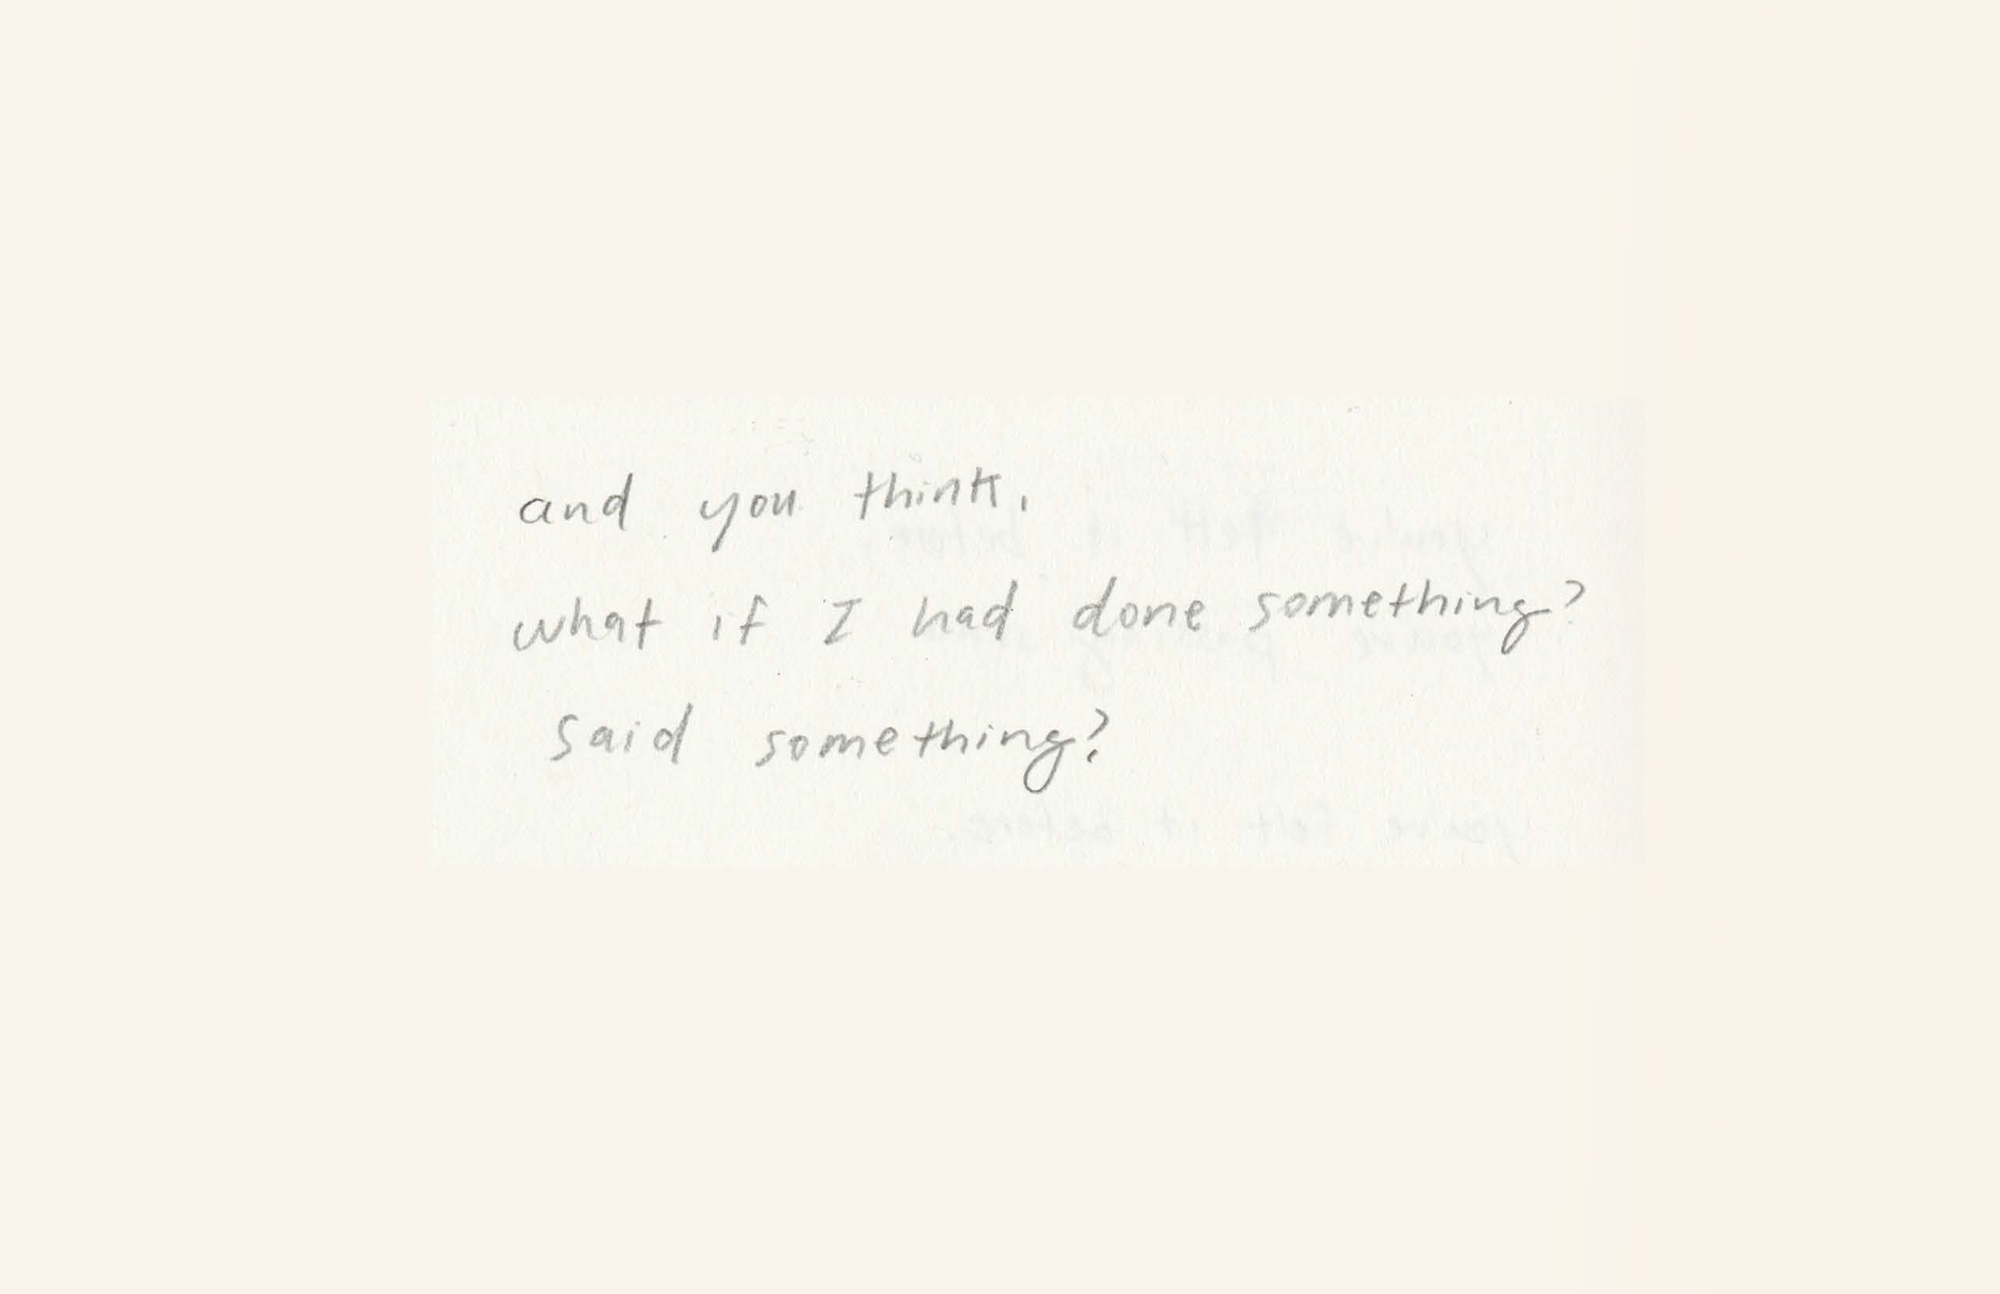 and you think,
what if I had done something?
said something?